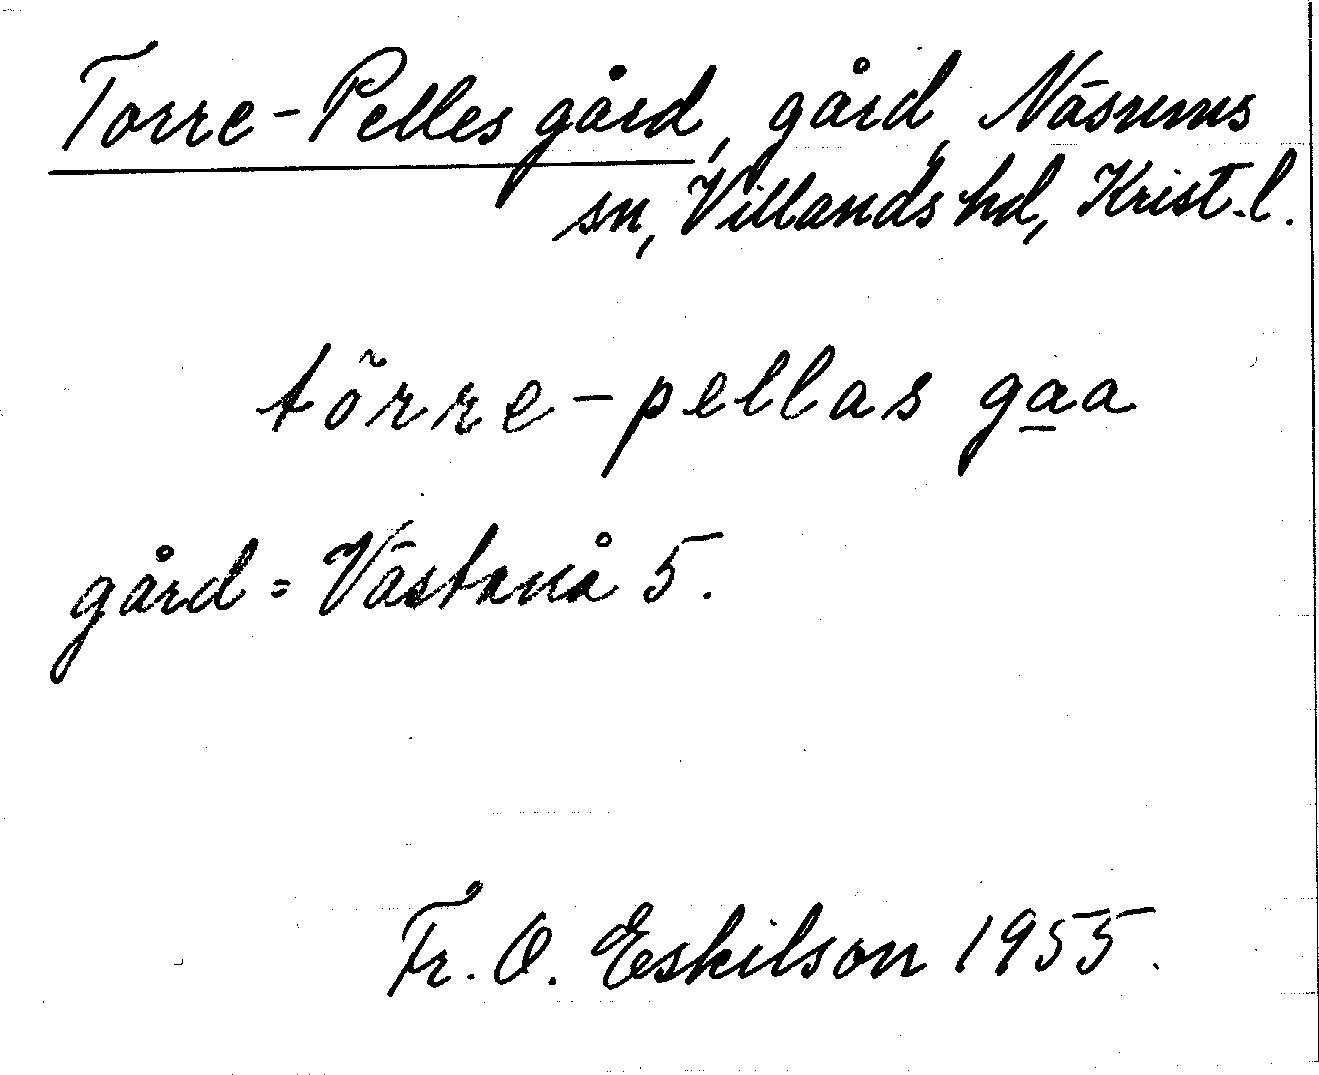 Torre-Pelles gård, gård, Näsums
sn, Villands hd, Krist. l.
tõrre-pellas gaa
gård = Västanå 5.
Fr. O. Eskilson 1955.